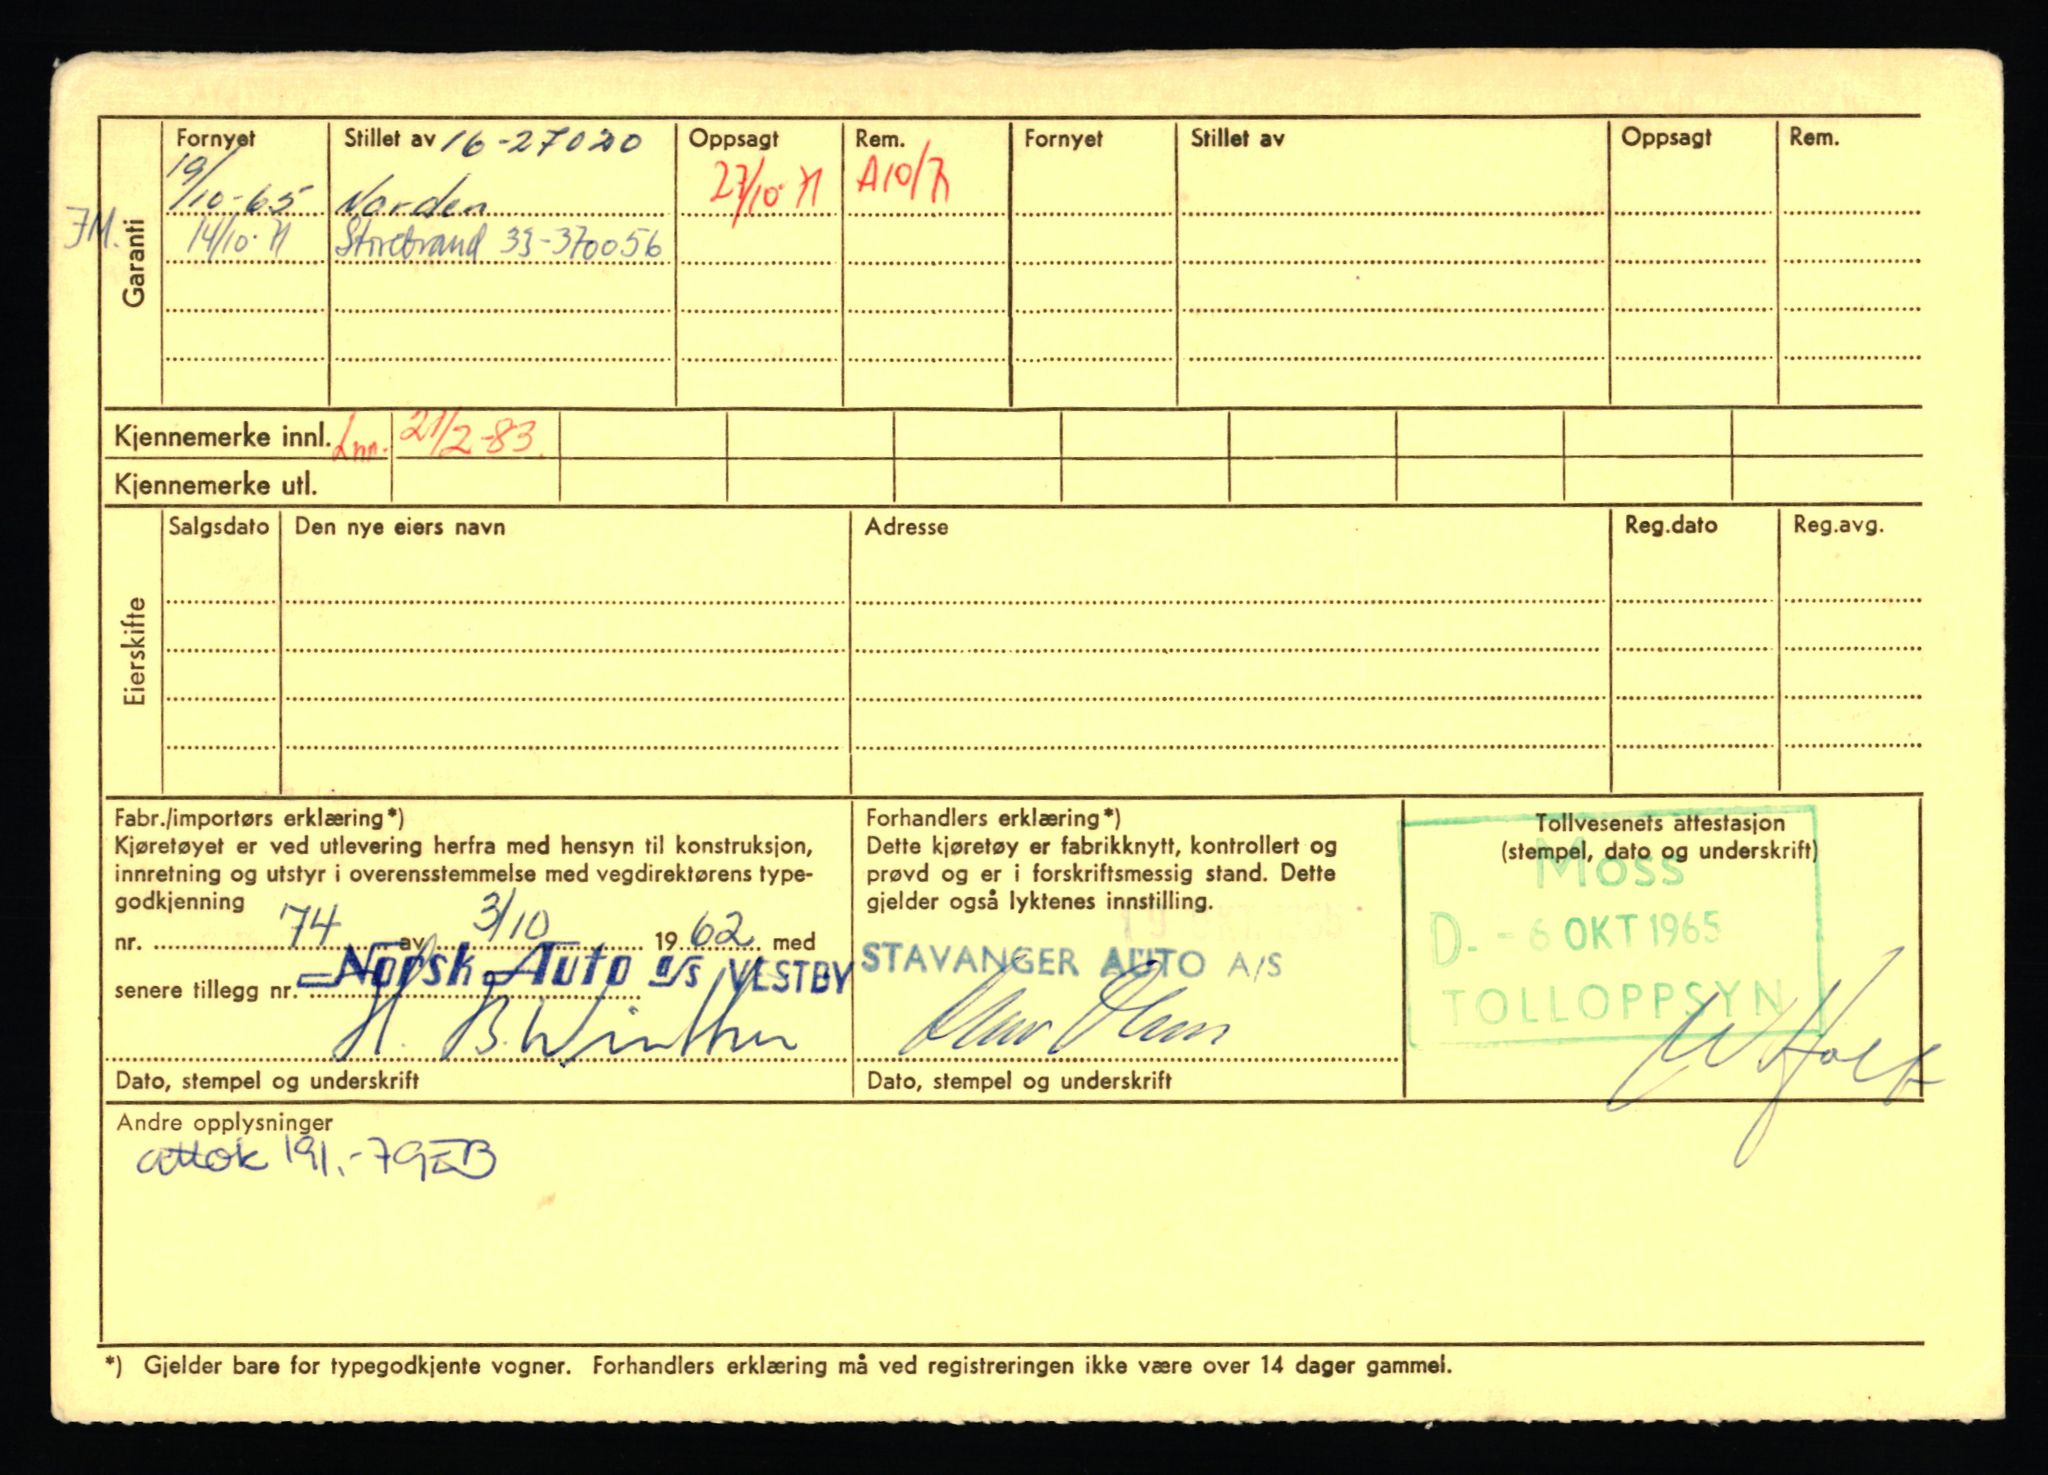 Garanti
Fornyet Stillet av 16-27020 Oppsagt Rem. Fornyet Stillet av Oppsagt Rem.
19/10-65 Norden 27/10-71 A10/71
JM. 14/10-71 Storebrand 33-370056
Kjennemerke innl. Inn. 21/2-83.
Kjennemerke utl.
Eierskifte
Salgsdato Den nye eiers navn Adresse Reg.dato Reg.avg.
Fabr./importørs erklæring*)
Kjøretøyet er ved utlevering herfra med hensyn til konstruksjon,
innretning og utstyr i overensstemmelse med vegdirektørens type-
godkjenning
nr. 74 av 3/10 1962 med
senere tillegg nr.
Norsk Auto a/s VESTBY
H. B. Winther
Dato, stempel og underskrift
Forhandlers erklæring*)
Dette kjøretøy er fabrikknytt, kontrollert og
prøvd og er i forskriftsmessig stand. Dette
gjelder også lyktenes innstilling.
STAVANGER AUTO A/S
Dato, stempel og underskrift
Tollvesenets attestasjon
(stempel, dato og underskrift)
MOSS
D. - 6 OKT 1965
TOLLOPPSYN
W Holt
Andre opplysninger
attok 191.-79
*) Gjelder bare for typegodkjente vogner. Forhandlers erklæring må ved registreringen ikke være over 14 dager gammel.